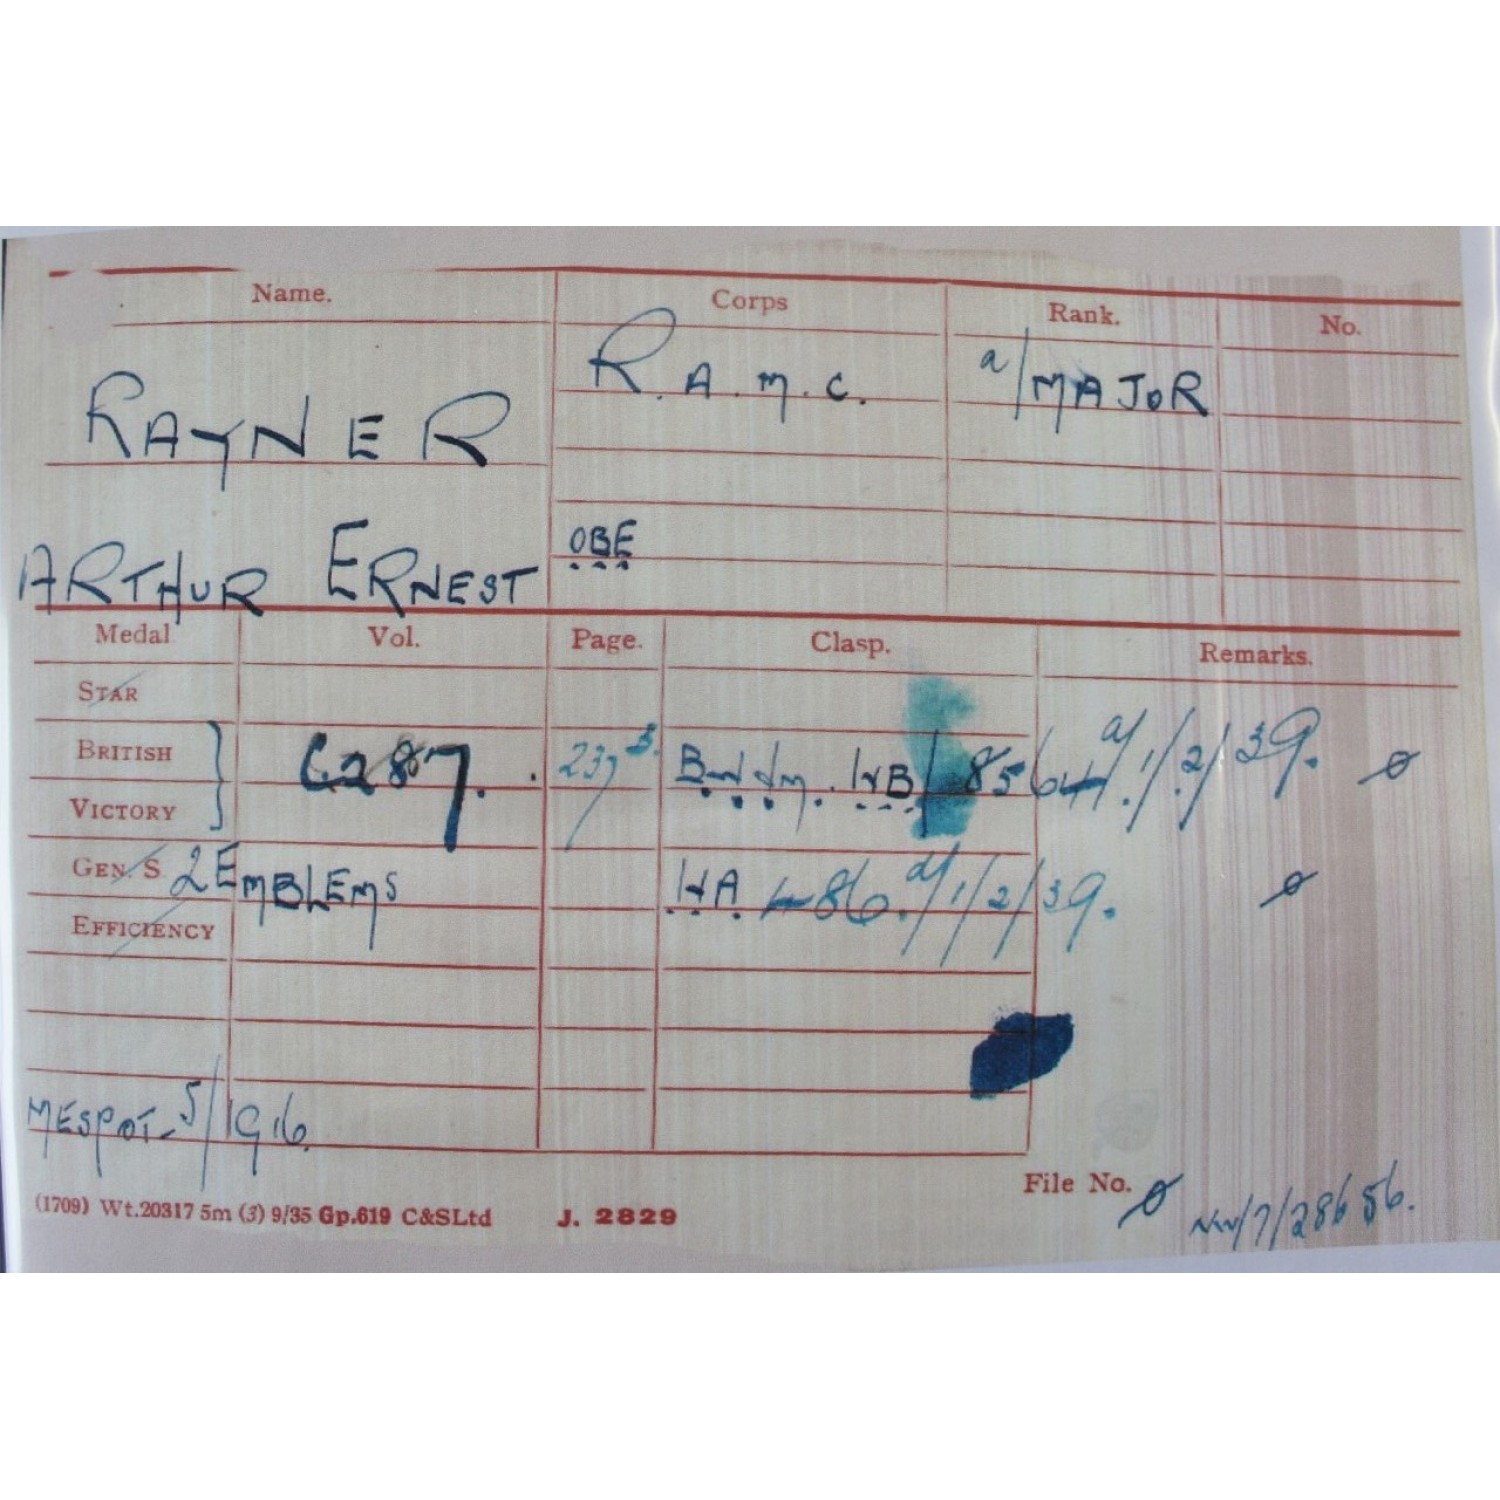 Name. Corps Rank. No.
RAYNER R.A.M.C. a/MAJOR
ARTHUR ERNEST OBE
Medal Vol. Page. Clasp. Remarks.
STAR
BRITISH C287. 237 B. BWVM. IVB/8564 d/1/2/39.
VICTORY
GEN. S. 2 EMBLEMS IVA 486. d/1/2/39.
EFFICIENCY
MESPOT-5/1916.
File No. NW/7/28656.
(1709) Wt.20317 5m (3) 9/35 Gp.619 C&SLtd J. 2829